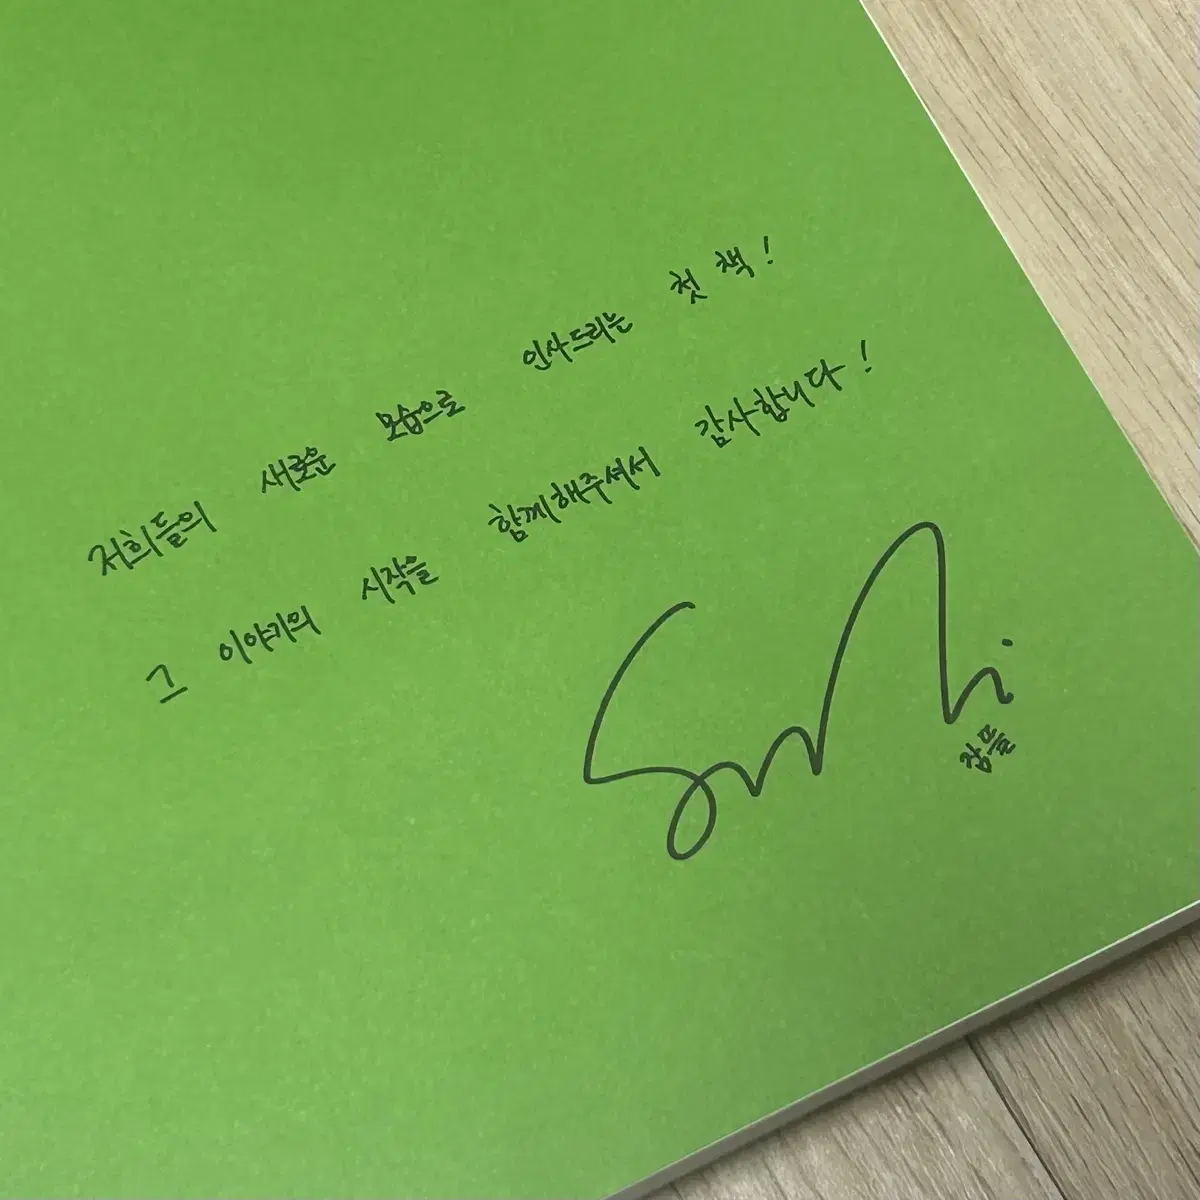 저희들의 새로운 모습으로 인사드리는 첫 책!
그 이야기의 시작을 함께해주셔서 감사합니다!
잠뜰